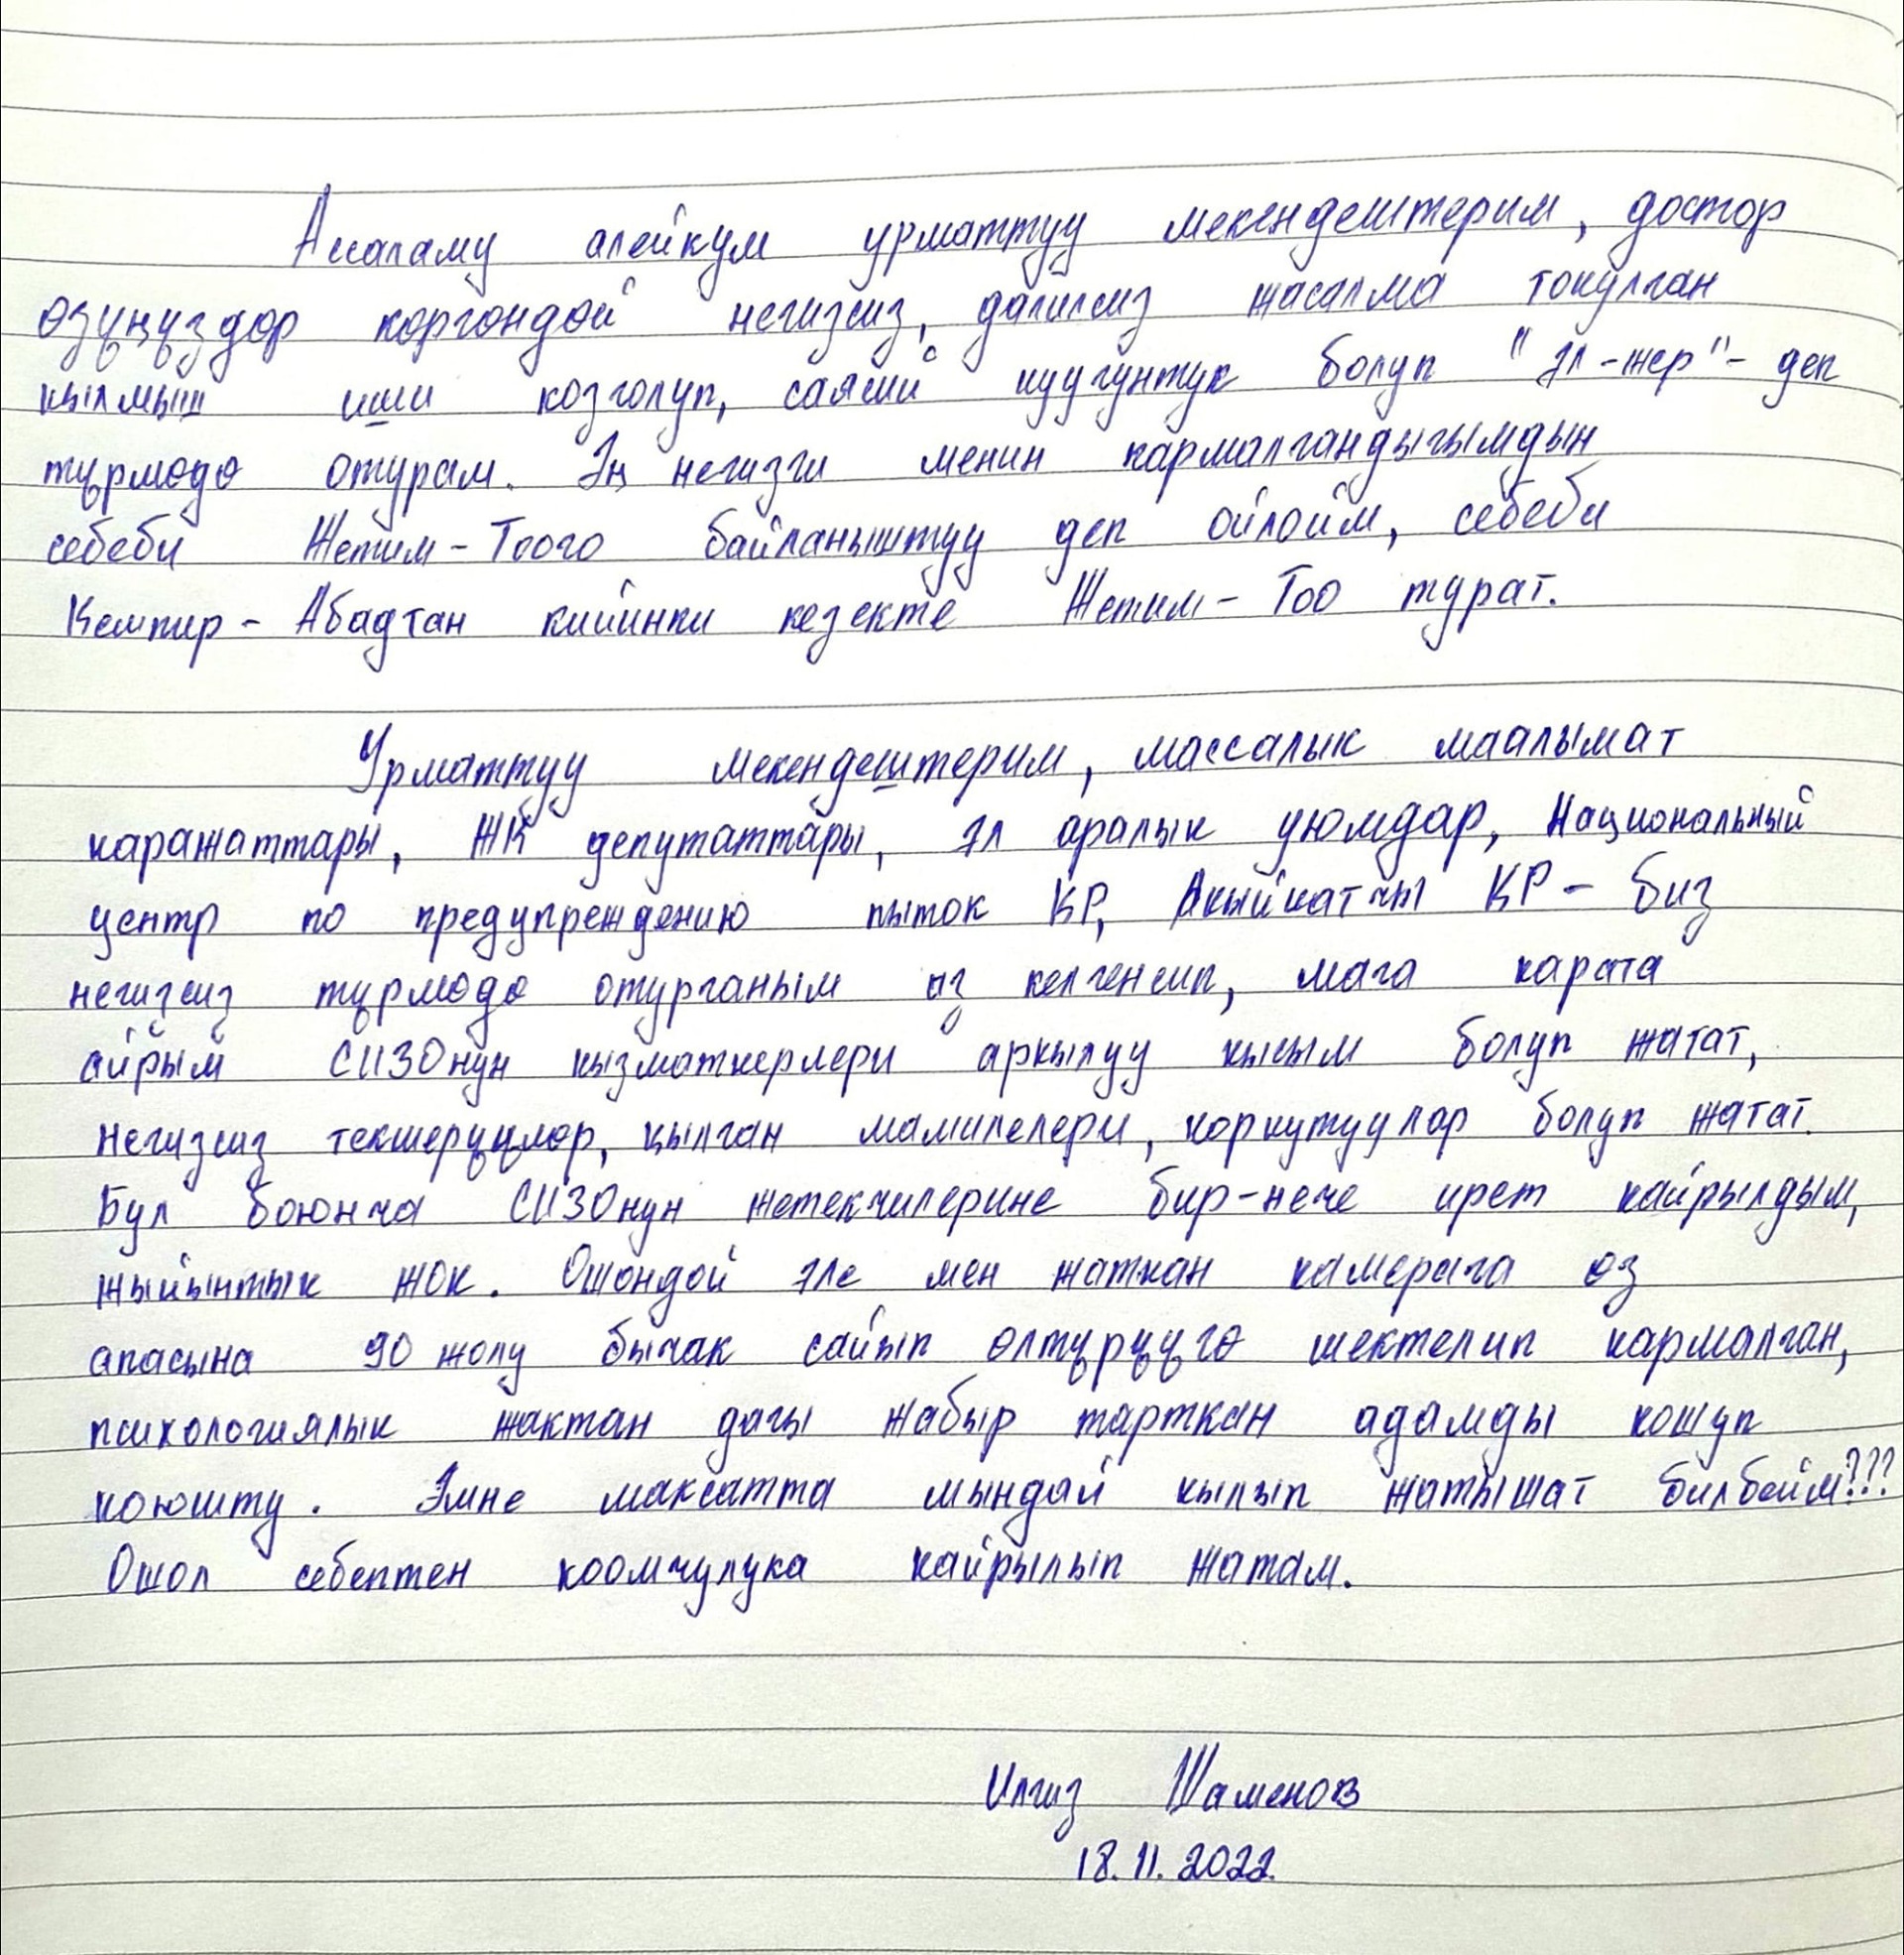 Ассаламу алейкум урматтуу мекендештерим, достор
өзүңүздөр көргөндөй негизсиз, далилсиз жасалма токулган
кылмыш иши козголуп, саясий куугунтук болуп "эл-жер"- деп
түрмөдө отурам. Эң негизги менин кармалгандыгымдын
себеби Жетим-Тоого байланыштуу деп ойлойм, себеби
Кемпир-Абадтан кийинки кезекте Жетим-Тоо турат.
Урматтуу мекендештерим, массалык маалымат
каражаттары, ЖК депутаттары, эл аралык уюмдар, Национальный
центр по предупреждению пыток КР, Акыйкатчы КР - биз
негизсиз түрмөдө отурганым аз келгенсип, мага карата
айрым СИЗОнун кызматкерлери аркылуу кысым болуп жатат,
негизсиз текшерүүлөр, кылган мамилелери, коркутуулар болуп жатат.
Бул боюнча СИЗОнун жетекчилерине бир-нече ирет кайрылдым,
жыйынтык жок. Ошондой эле мен жаткан камерага өз
апасына 90 жолу бычак сайып өлтүрүүгө шектелип кармалган,
психологиялык жактан дагы жабыр тарткан адамды кошуп
коюшту. Эмне максатта мындай кылып жатышат билбейм???
Ошол себептен коомчулука кайрылып жатам.
Илгиз Шаменов
18.11.2022.